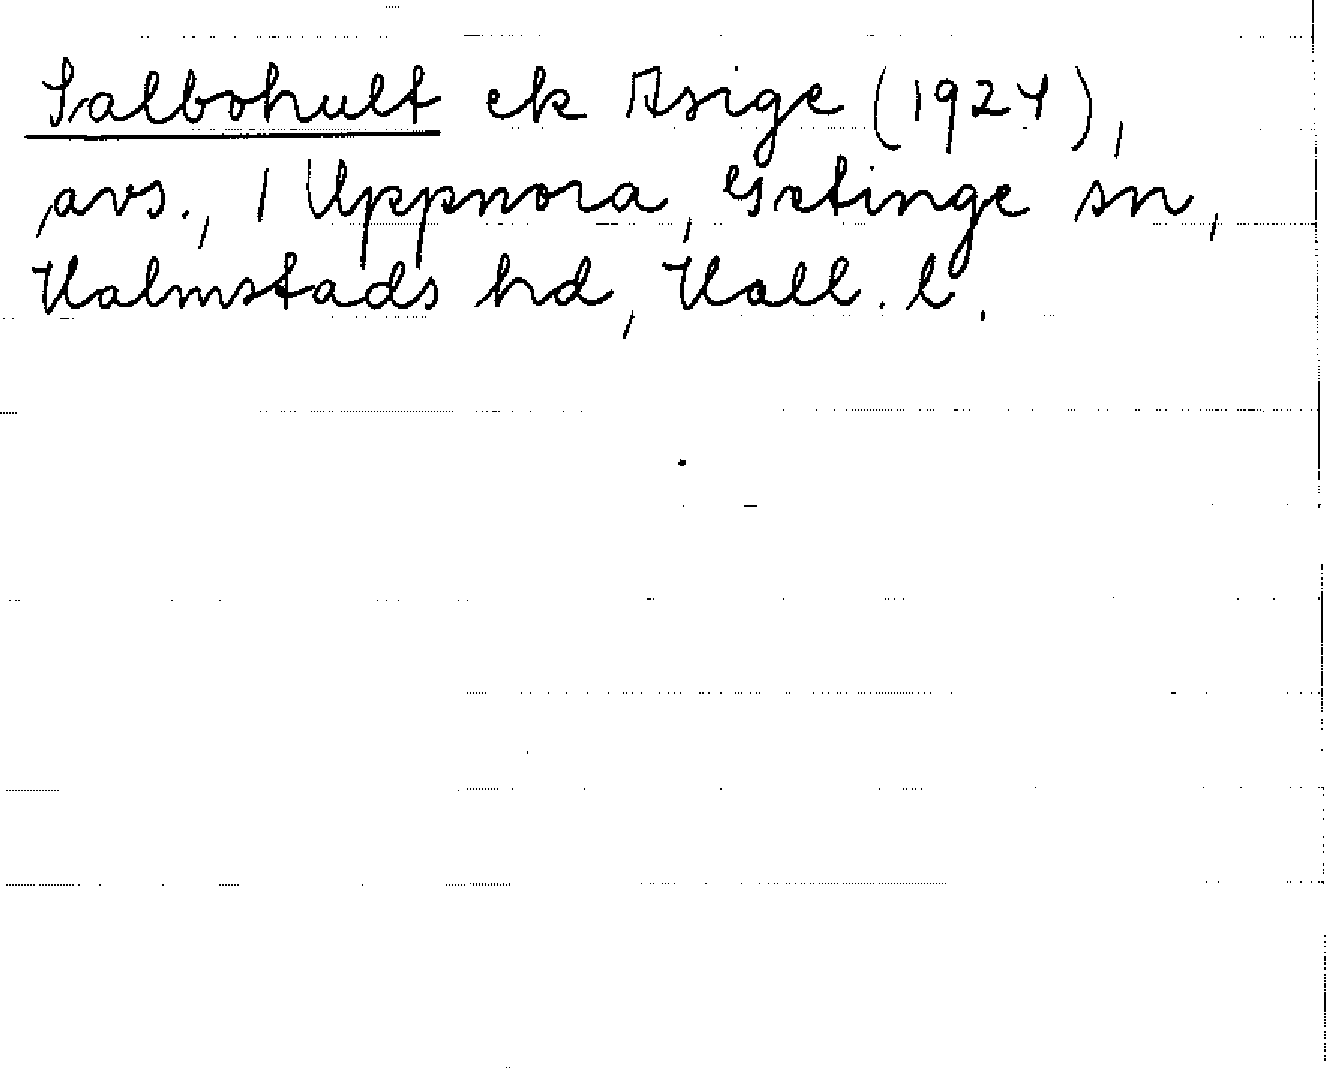 Salbohult ek Asige (1924),
avs., 1 Uppnora, Getinge sn,
Halmstads hd, Hall. l.